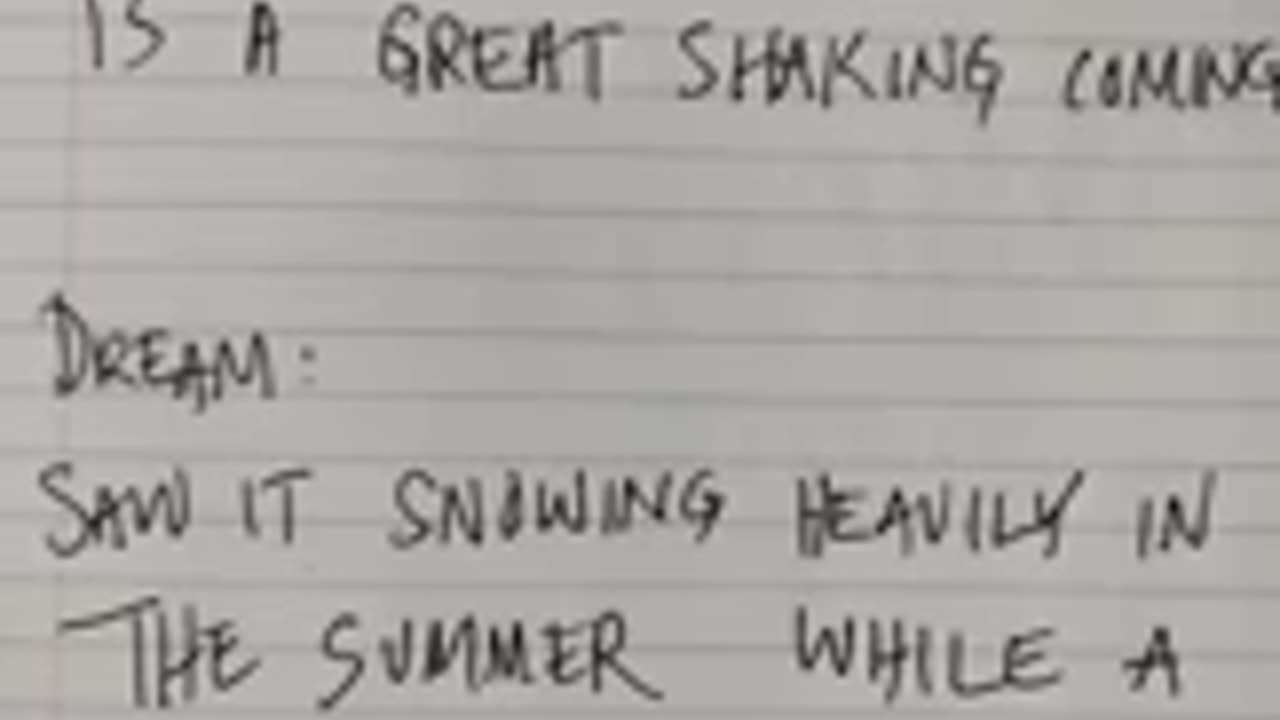 IS A GREAT SHAKING COMING
DREAM:
SAW IT SNOWING HEAVILY IN
THE SUMMER WHILE A